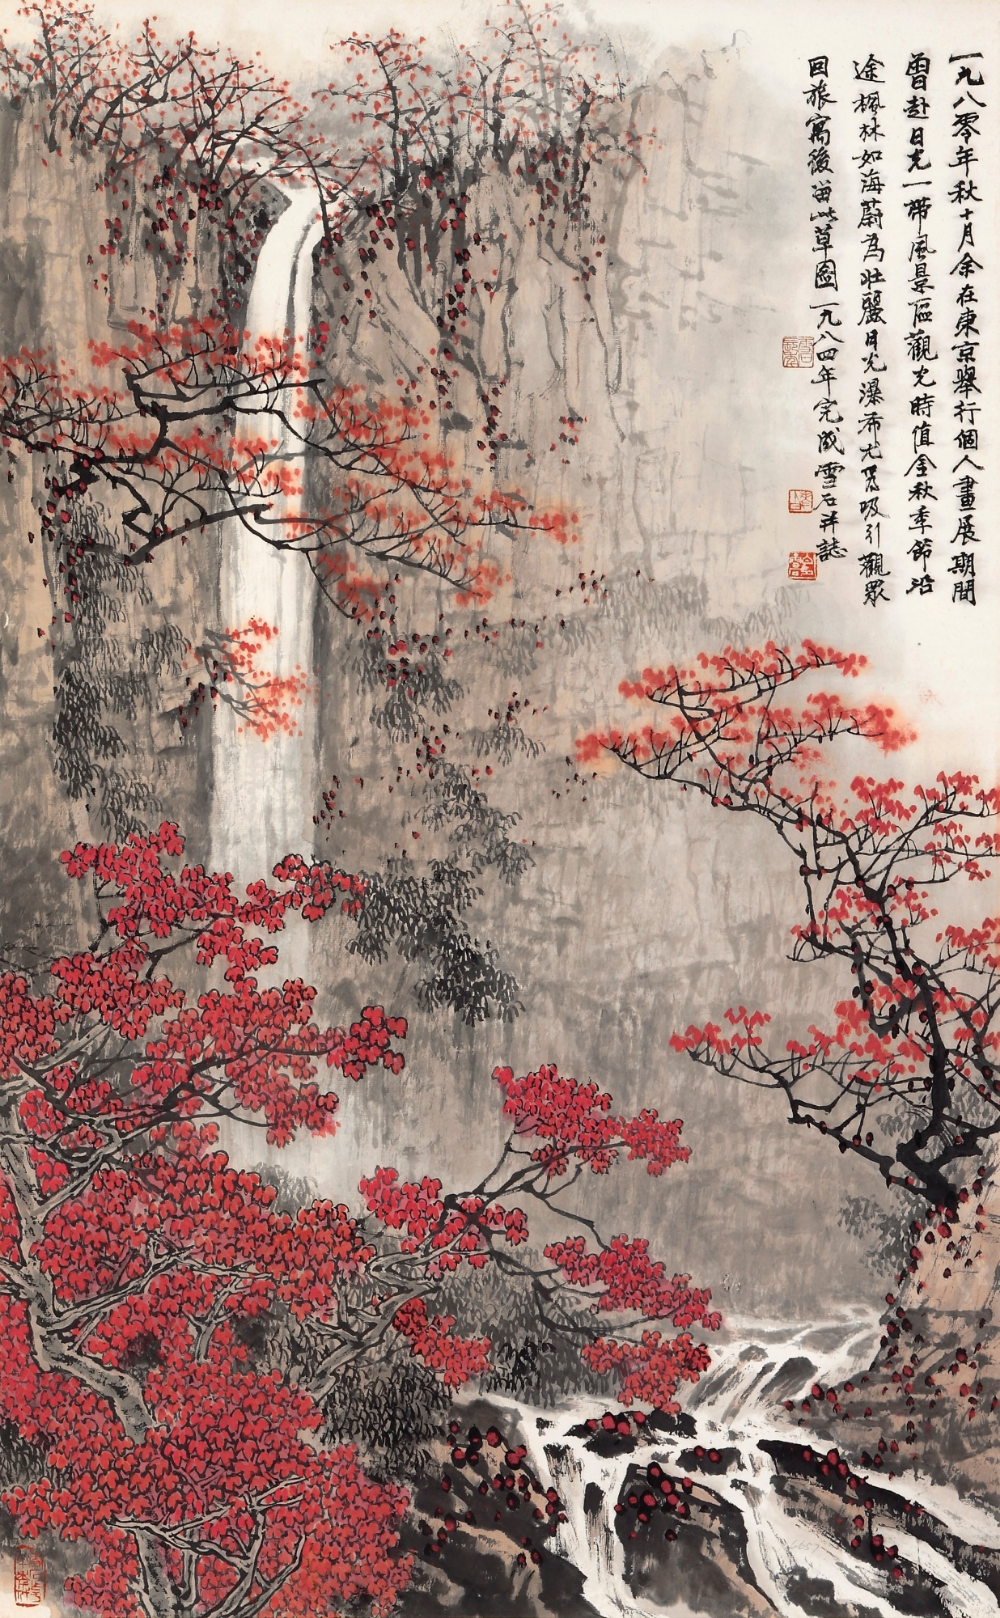 一九八零年秋十月余在東京舉行個人畫展期間
曾赴日光一帶風景區觀光時值金秋季節沿
途楓林如海蔚為壯麗日光瀑布尤為吸引觀眾
回旅寓後留此草圖一九八四年完成雪石并誌